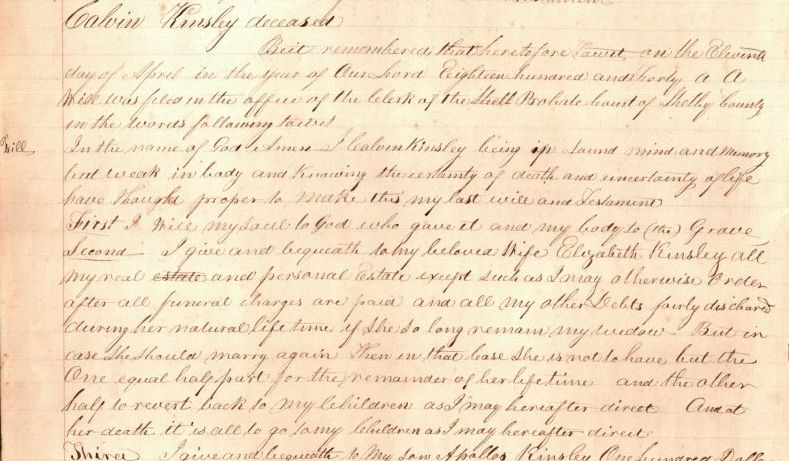 Calvin Kinsley deceased
Beit remembered that heretofore towit, on the Eleventh
day of April in the year of Our Lord Eighteen hundred and Forty a A
Will was filed in the office of the Clerk of the Shelb Probate Court of Shelby County
in the words following towit
Will
In the name of God Amen I Calvin Kinsley being in sound mind and Memory
but weak in body and Knowing the certainty of death and uncertainty of life
have thought proper to make this my last will and Testament
First I Will my Soul to God who gave it and my body to (the) Grave
Second I give and bequeath to my beloved Wife Elizabeth Kinsley all
my real estate and personal Estate except such as I may otherwise Order
after all funeral charges are paid and all my other Debts fairly dischard
during her natural life time if She so long remain my widow But in
case She should marry again then in that Case She is not to have but the
One equal half part for the remainder of her life time and the other
half to revert back to my Children as I may hereafter direct And at
her death it is all to go to my Children as I may hereafter direct
Third I give and bequeath to My Son Apollos Kinsley One hundred Dolla